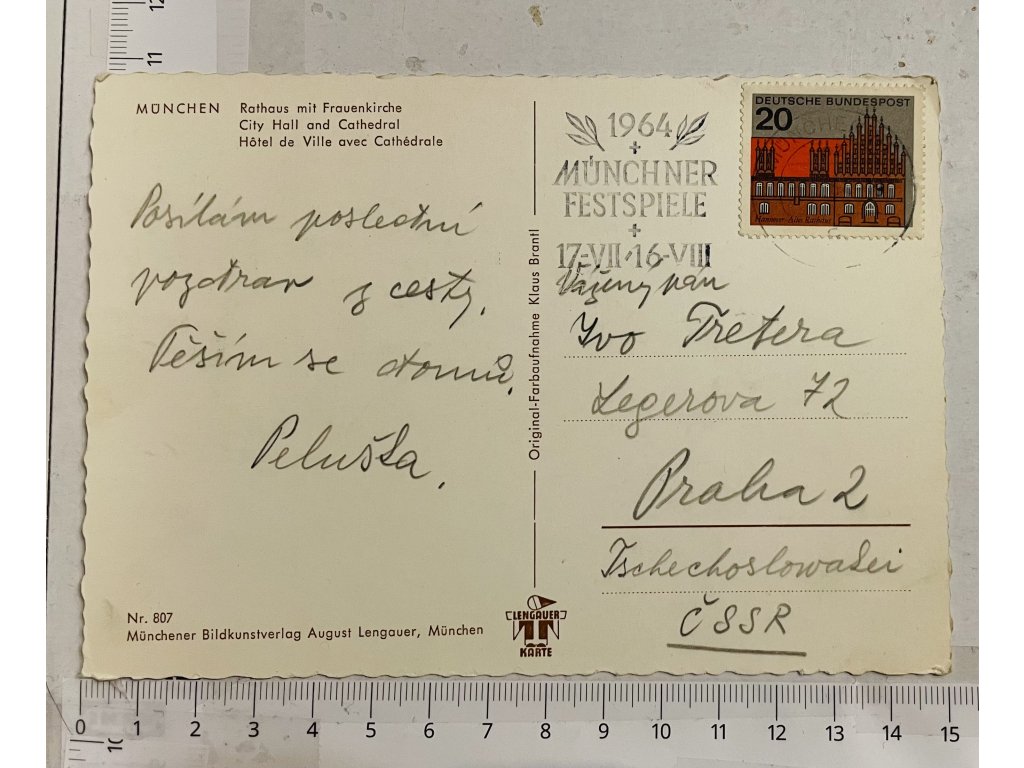 MÜNCHEN Rathaus mit Frauenkirche
City Hall and Cathedral
Hôtel de Ville avec Cathédrale
Posílám poslední
pozdrav z cesty.
Těším se domů.
Peluška.
Nr. 807
Münchener Bildkunstverlag August Lengauer, München
Original-Farbaufnahme Klaus Brantl
LENGAUER
KARTE
1964
+
MÜNCHNER
FESTSPIELE
+
17-VII-16-VIII
DEUTSCHE BUNDESPOST
20
Hannover - Altes Rathaus
Vážený pán
Ivo Tretera
Legerova 72
Praha 2
Tschechoslowakei
ČSSR
12
11
0 1 2 3 4 5 6 7 8 9 10 11 12 13 14 15
10